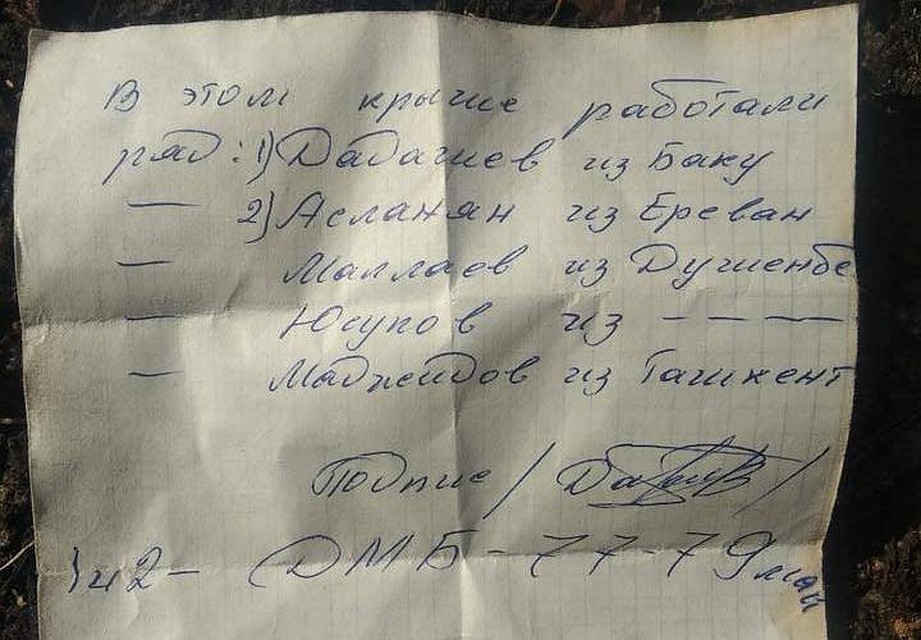 В этом крыше работали
ряд: 1) Дадашев из Баку
— 2) Асланян из Ереван
— Маллаев из Душенбе
— Юсупов из - - - -
— Маджидов из Ташкент
Подпис / /
1 и 2 - ДМБ - 77-79 май